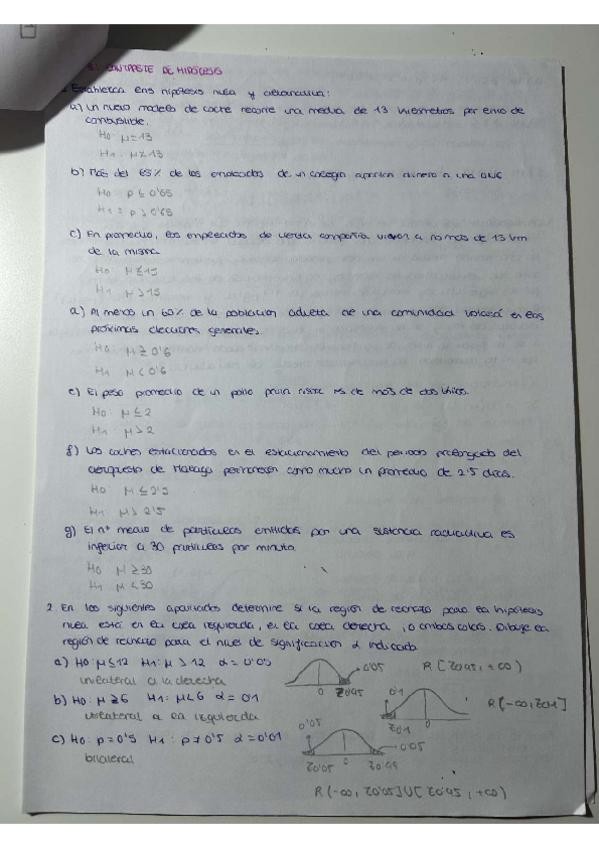 CONTRASTE DE HIPÓTESIS
Establezca las hipótesis nula y alternativa:
a) Un nuevo modelo de coche recorre una media de 13 kilómetros por litro de
combustible.
H0: μ = 13
H1: μ ≠ 13
b) Más del 65% de los empleados de un colegio aportan dinero a una ONG
H0: p ≤ 0'65
H1: p > 0'65
c) En promedio, los empleados de cierta compañía viven a no más de 15 km
de la misma
H0: μ ≤ 15
H1: μ > 15
d) Al menos un 60% de la población adulta de una comunidad votará en las
próximas elecciones generales.
H0: μ ≥ 0'6
H1: μ < 0'6
e) El peso promedio de un pollo para es de más de dos kilos.
H0: μ ≤ 2
H1: μ > 2
f) Los coches estacionados en el estacionamiento del periodo prolongado del
aeropuerto de Málaga permanecen como mucho un promedio de 2'5 días.
H0: μ ≤ 2'5
H1: μ > 2'5
g) El nº medio de partículas emitidas por una sustancia radiactiva es
inferior a 30 partículas por minuto.
H0: μ ≥ 30
H1: μ < 30
2. En los siguientes apartados determine si la región de rechazo para la hipótesis
nula está en la cola izquierda, en la cola derecha, o ambas colas. Dibuje la
región de rechazo para el nivel de significación α indicado.
a) H0: μ ≤ 12 H1: μ > 12 α = 0'05
unilateral a la derecha
0'05
0 Z0'95
R [Z0'95, +∞)
b) H0: μ ≥ 6 H1: μ < 6 α = 0'1
unilateral a la izquierda
0'1
0
R (-∞, Z0'1]
c) H0: p = 0'5 H1: p ≠ 0'5 α = 0'01
bilateral
0'05
0'05
Z0'05 0 Z0'95
R (-∞, Z0'05] U [Z0'95, +∞)